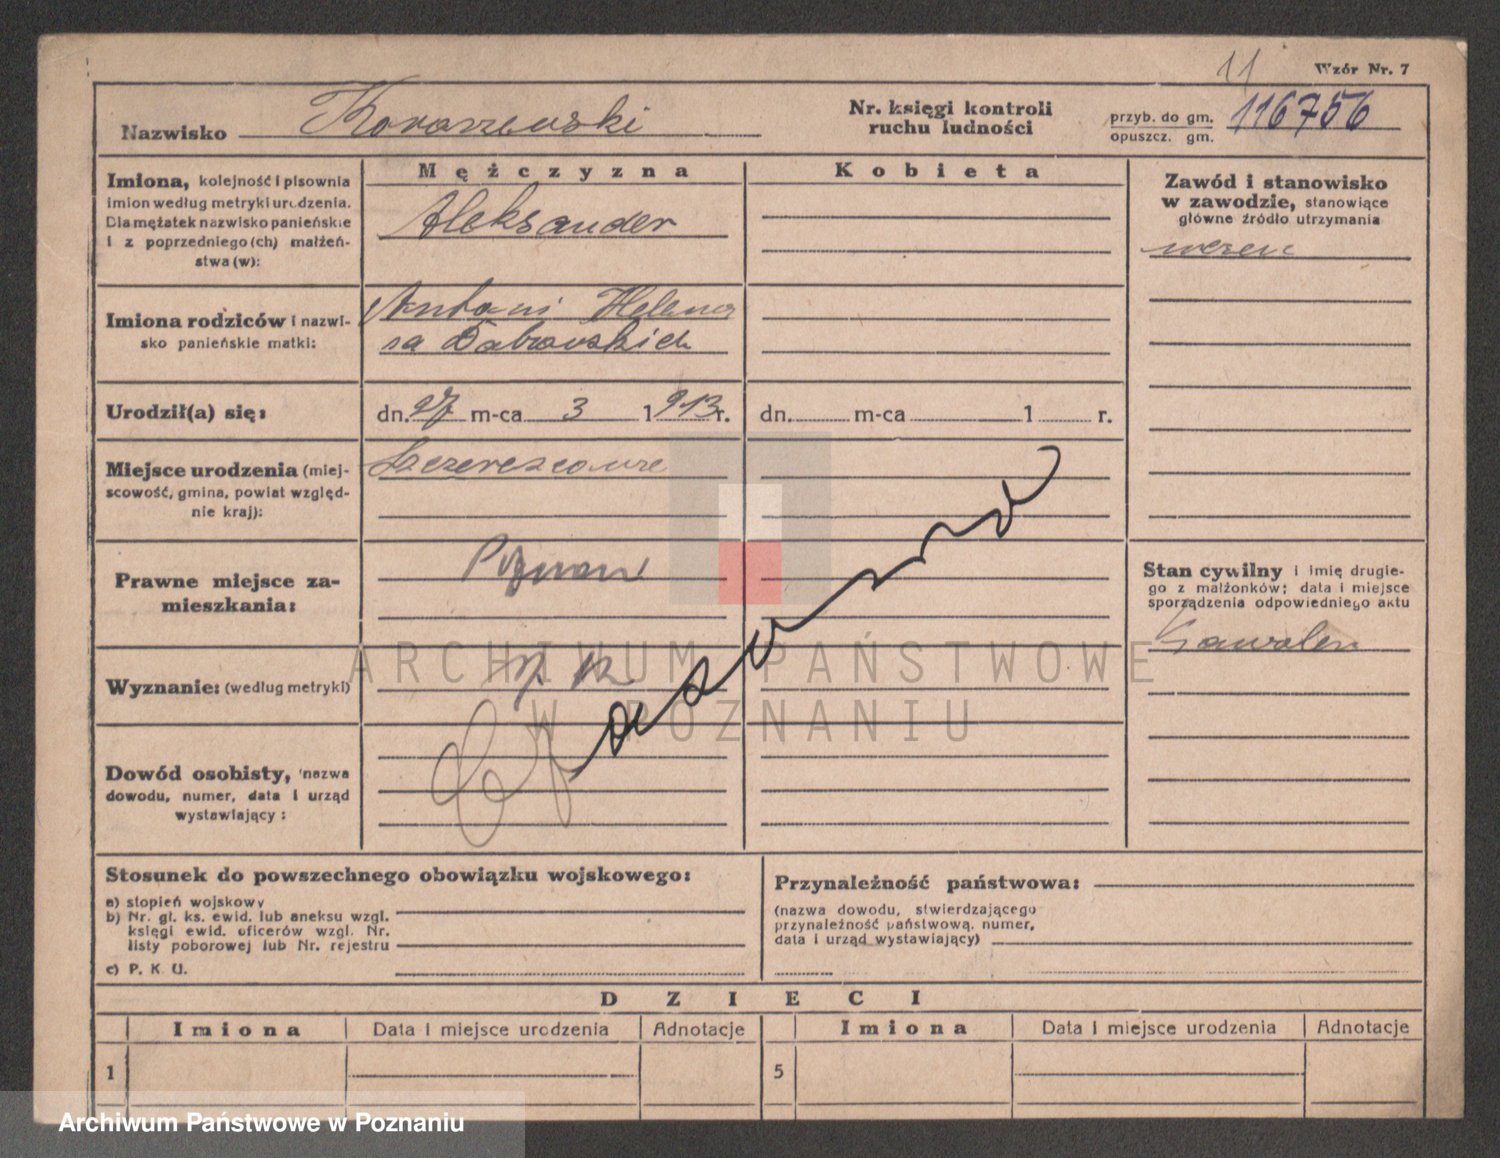 11
Wzór Nr. 7
Nazwisko Koraszewski
Nr. księgi kontroli
ruchu ludności
przyb. do gm.
opuszcz. gm.
116756
Imiona, kolejność i pisownia
imion według metryki urodzenia.
Dla mężatek nazwisko panieńskie
i z poprzedniego(ch) małżeń-
stwa(w):
Mężczyzna
Aleksander
Kobieta
Zawód i stanowisko
w zawodzie, stanowiące
główne źródło utrzymania
uczeń
Imiona rodziców i nazwi-
sko panieńskie matki:
Antoni Helena
za Dabrowskich
Urodził(a) się:
dn. 27 m-ca 3 1913 r.
dn. m-ca 1 r.
Miejsce urodzenia (miej-
scowość, gmina, powiat względ-
nie kraj):
Prawne miejsce za-
mieszkania:
Poznań
Stan cywilny i imię drugie-
go z małżonków; data i miejsce
sporządzenia odpowiedniego aktu
Kawaler
Wyznanie: (według metryki)
r. k.
Dowód osobisty, nazwa
dowodu, numer, data i urząd
wystawiający:
ARCHIWUM PAŃSTWOWE
W POZNANIU
Stosunek do powszechnego obowiązku wojskowego:
a) stopień wojskowy
b) Nr. gł. ks. ewid. lub aneksu wzgl.
księgi ewid. oficerów wzgl. Nr.
listy poborowej lub Nr. rejestru
c) P. K. U.
Przynależność państwowa:
(nazwa dowodu, stwierdzającego
przynależność państwową, numer,
data i urząd wystawiający)
DZIECI
Imiona Data i miejsce urodzenia Adnotacje Imiona Data i miejsce urodzenia Adnotacje
1 5
Archiwum Państwowe w Poznaniu